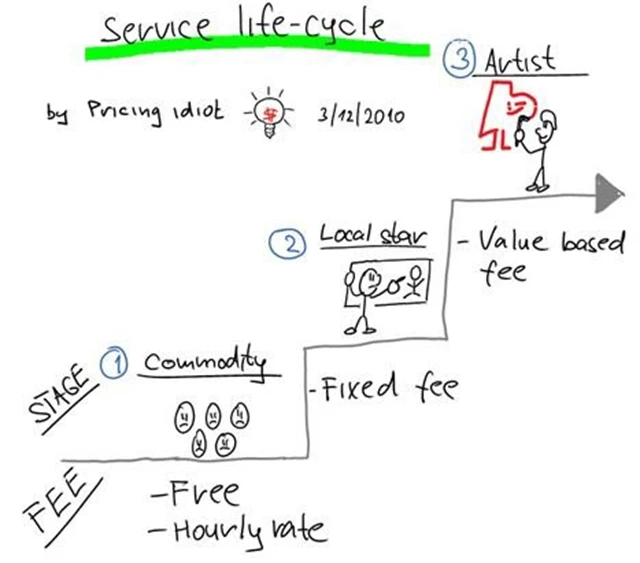 Service life-cycle
by Pricing idiot $ 3/12/2010
3 Artist
2 Local star
- Value based
fee
STAGE 1 Commodity
- Fixed fee
FEE
- Free
- Hourly rate